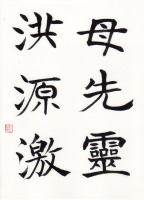 母先靈
洪源激